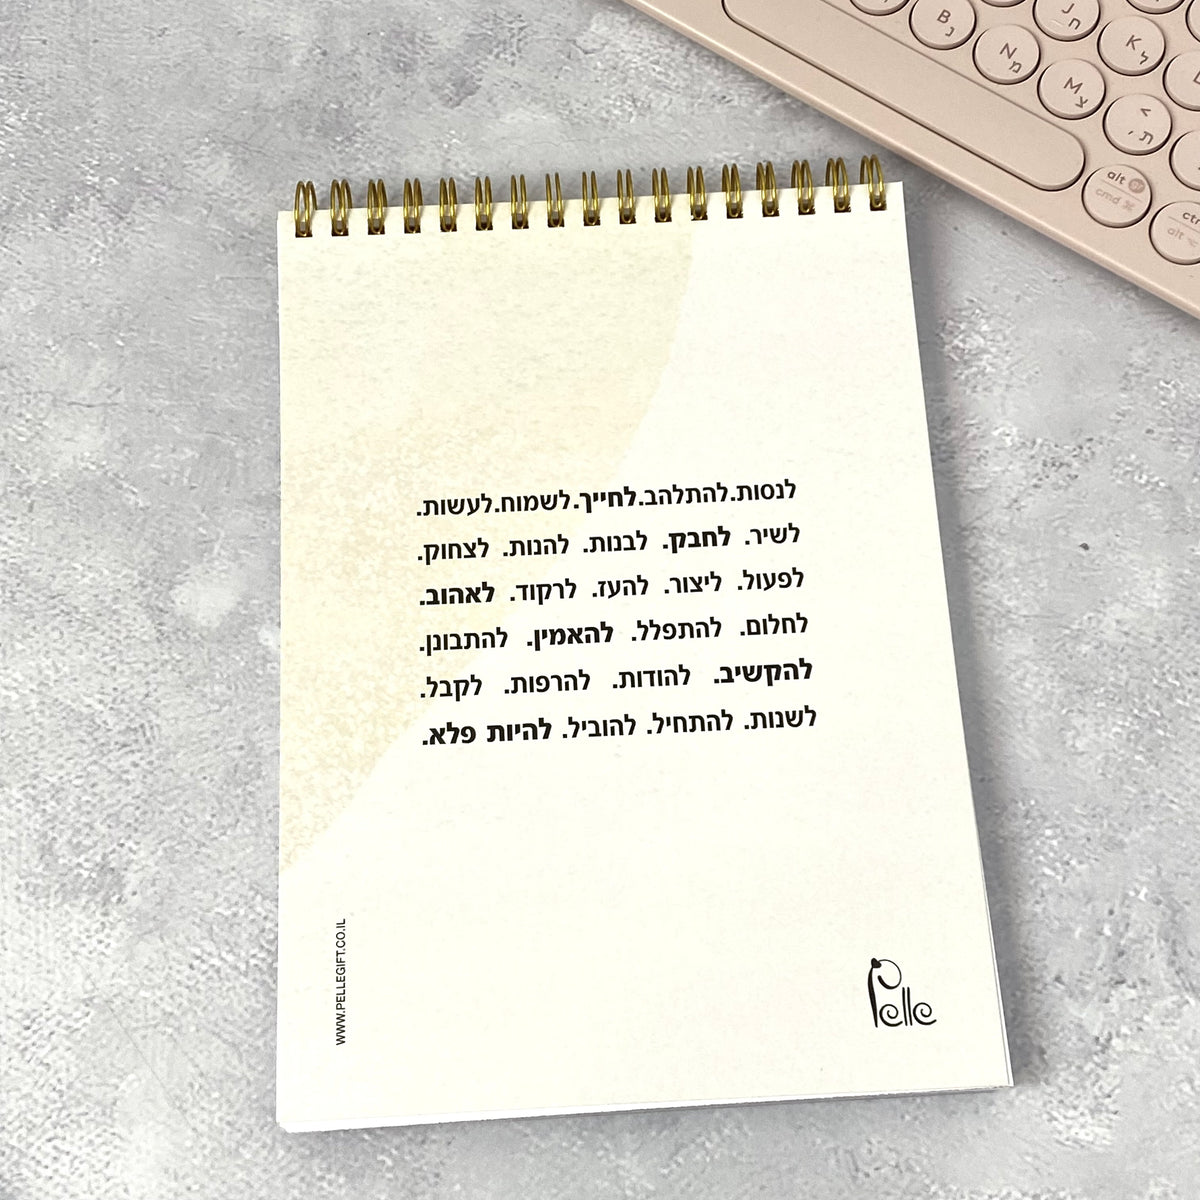 לנסות.להתלהב.לחייך.לשמוח.לעשות.
לשיר. לחבק. לבנות. להנות. לצחוק.
לפעול. ליצור. להעז. לרקוד. לאהוב.
לחלום. להתפלל. להאמין. להתבונן.
להקשיב. להודות. להרפות. לקבל.
לשנות. להתחיל. להוביל. להיות פלא.
WWW.PELLEGIFT.CO.IL
Pelle
B נ
N מ
M צ
J ח
K ל
< ת ,
alt gr
cmd ⌘
alt